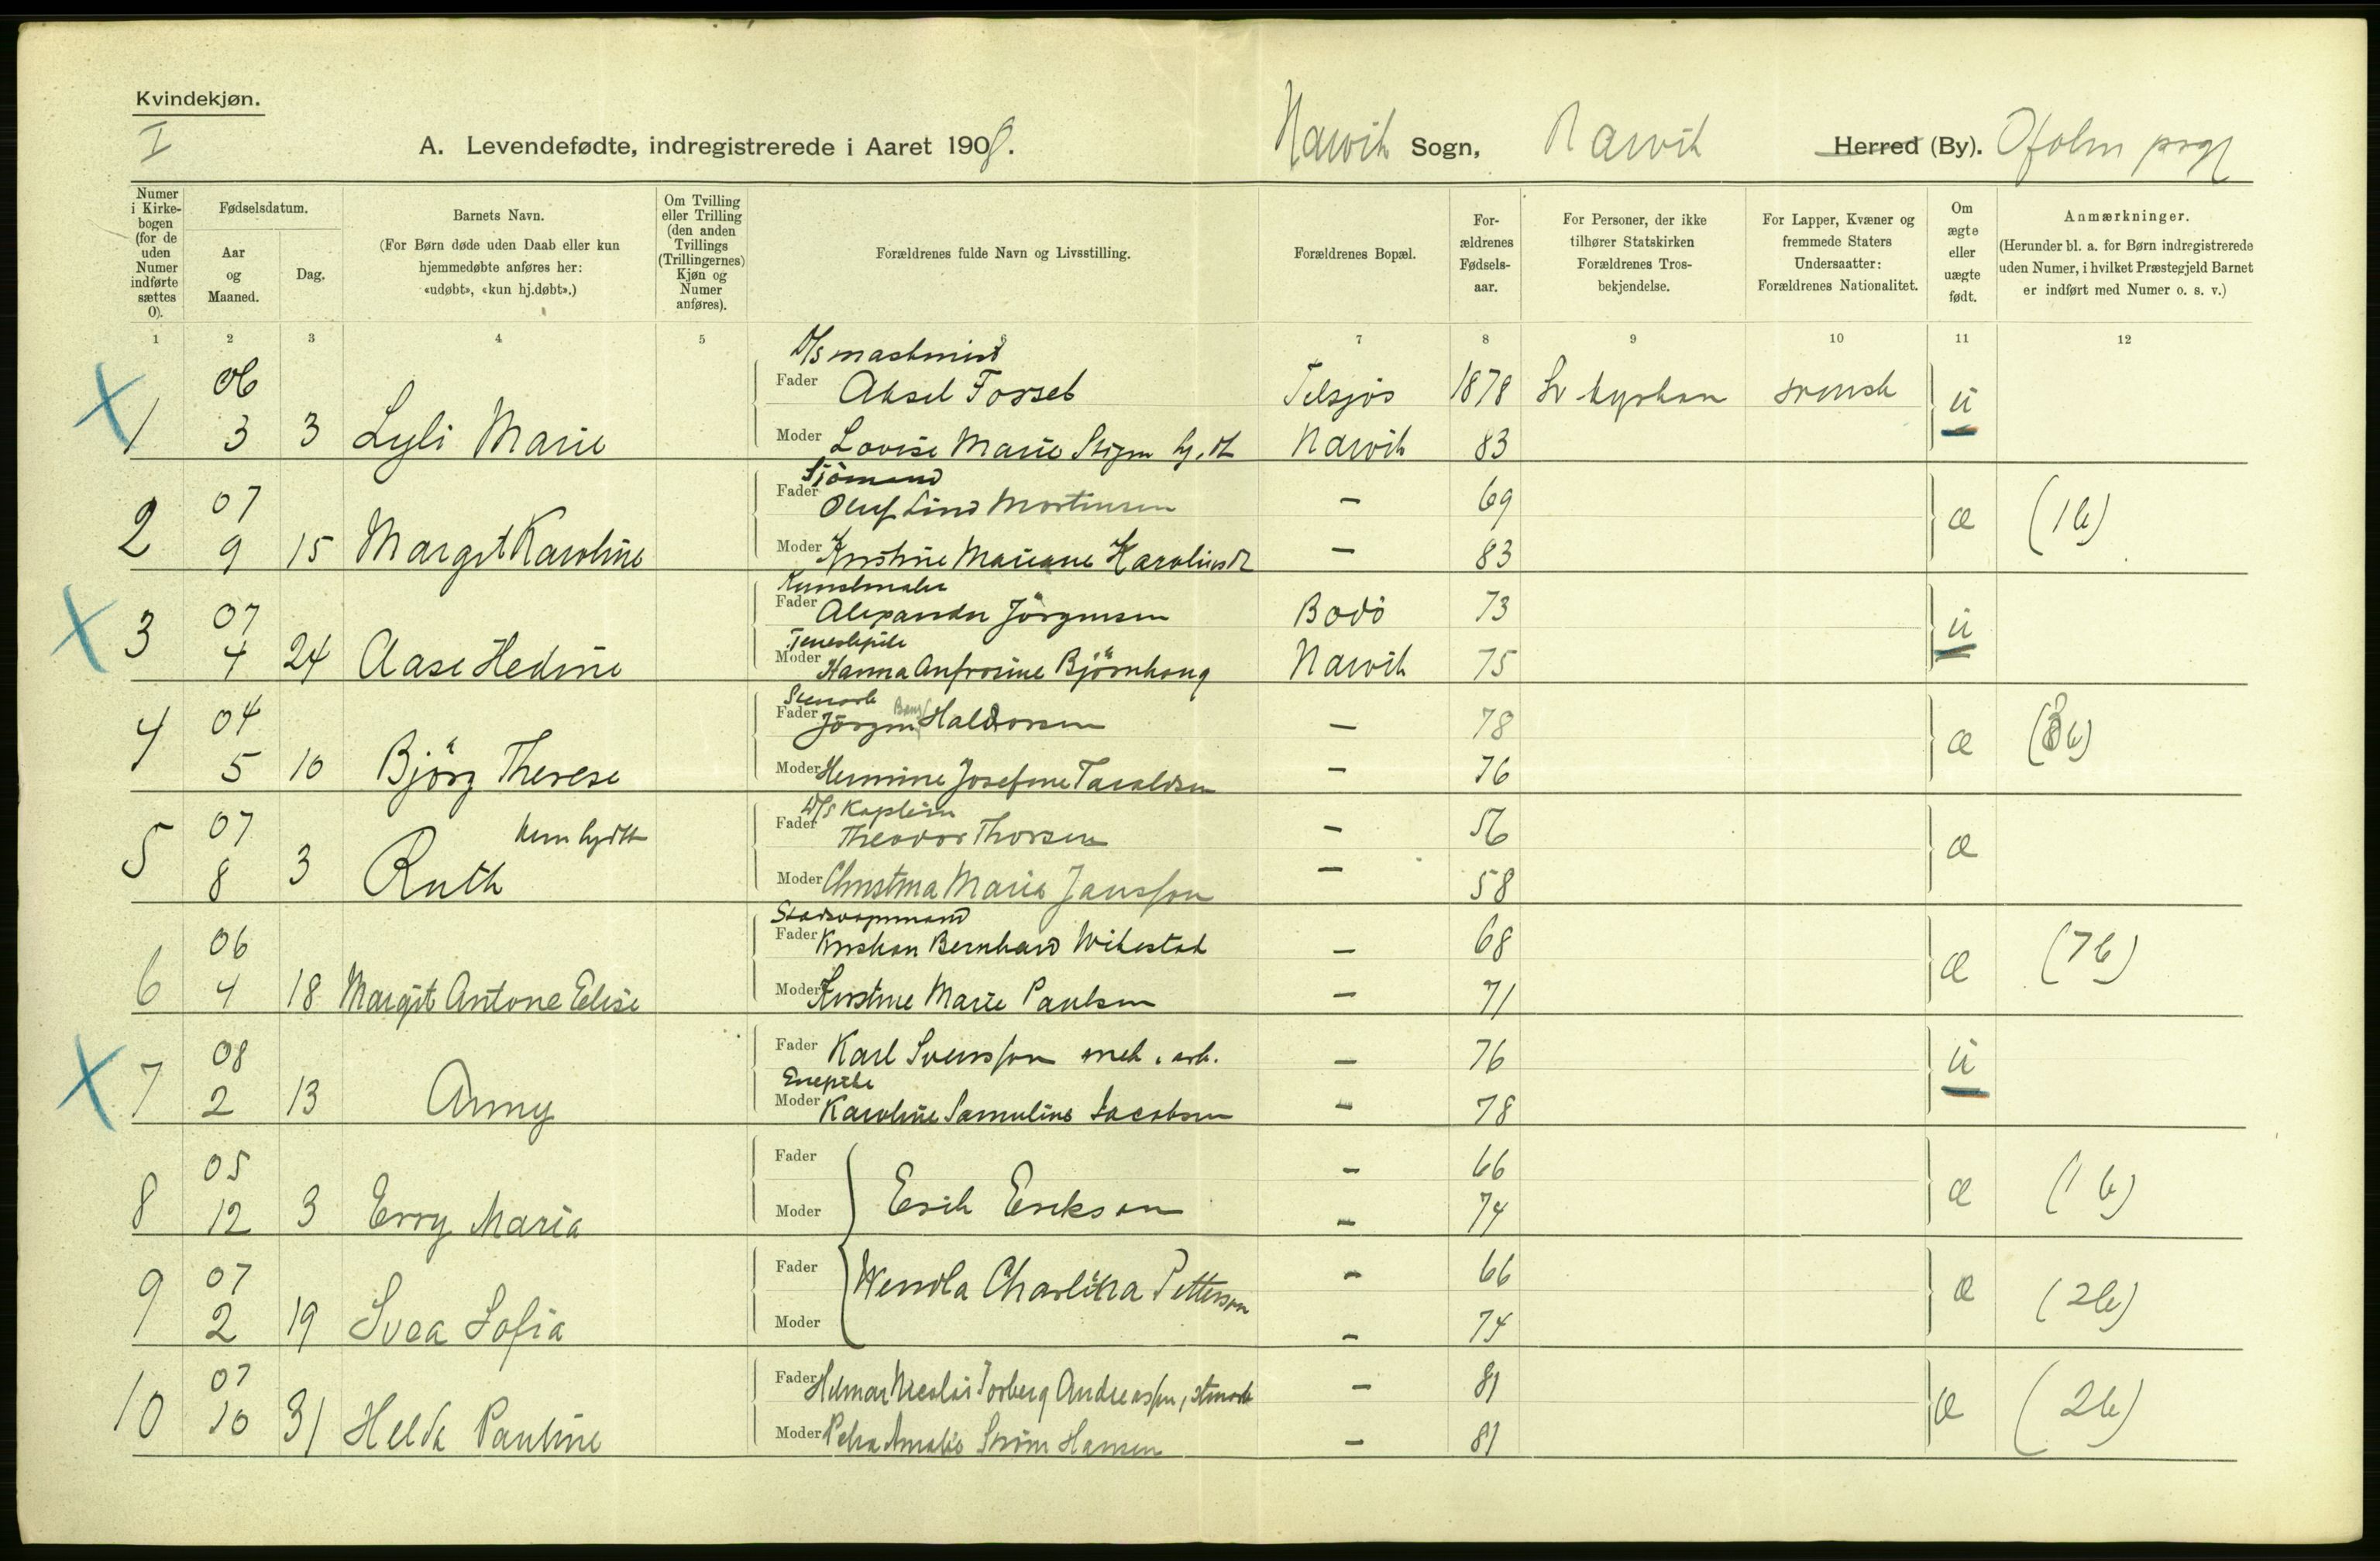 Kvindekjøn.
I
A. Levendefødte, indregistrerede i Aaret 1908.
Narvik Sogn, Narvik Herred (By). Ofoten prgj
Numer i Kirkebogen (for de uden Numer indførte sættes 0).
Fødselsdatum.
Aar og Maaned.
Dag.
Barnets Navn.
(For Børn døde uden Daab eller kun hjemmedøbte anføres her: «udøbt», «kun hj.døbt».)
Om Tvilling eller Trilling (den anden Tvillings (Trillingernes) Kjøn og Numer anføres).
Forældrenes fulde Navn og Livsstilling.
Forældrenes Bopæl.
Forældrenes Fødselsaar.
For Personer, der ikke tilhører Statskirken Forældrenes Trosbekjendelse.
For Lapper, Kvæner og fremmede Staters Undersaatter: Forældrenes Nationalitet.
Om ægte eller uægte født.
Anmærkninger.
(Herunder bl. a. for Børn indregistrerede uden Numer, i hvilket Præstegjeld Barnet er indført med Numer o. s. v.)
1 2 3 4 5 6 7 8 9 10 11 12
X 1 06 3 3 Lyli Marie
D/s maskinist
Fader Aksel Forseb 1878 svensk u
Moder Lovise Marie Narvik 83
2 07 9 15 Margit Karoline
Sjömand
Fader Oluf Lind Mortensen — 69 æ (1b)
Moder Kristine Mariane — 83
X 3 07 4 24 Aase Hedvine
Kunstmaler
Fader Alexander Jörgensen Bodö 73 u
Tenestepike
Moder Hanna Anfrosine Björnhaug Narvik 75
4 04 5 10 Björg Therese
Stenarb
Fader Jörgen Bang Haldorsen — 78 æ
Moder Hermine Josefine Taraldsen — 76
5 07 8 3 Ruth
D/s Kaptein
Fader Theodor Thorsen — 56 æ
Moder Christina Maria Jansson — 58
6 06 4 18 Margit Antone Elise
Fader Kristian Bernhard Wikestad — 68 æ (7b)
Moder Kirstine Marie Paulsen — 71
X 7 08 2 13 Anny
Fader Karl Svensson mek. arb. — 76 u
Enepike
Moder Karoline Samuline Jacobsen — 78
8 05 12 3 Erry Maria
Fader — 66 æ (1b)
Moder Erik Erikson — 74
9 07 2 19 Svea Sofia
Fader Wendla Charlotta Petterson — 66 æ (2b)
Moder — 74
10 07 10 31 Helda Pauline
Fader Hilmar Nicolai Torberg Andreassen, stenarb — 81 æ (2b)
Moder Petra Amalie Strøm Hansen — 81